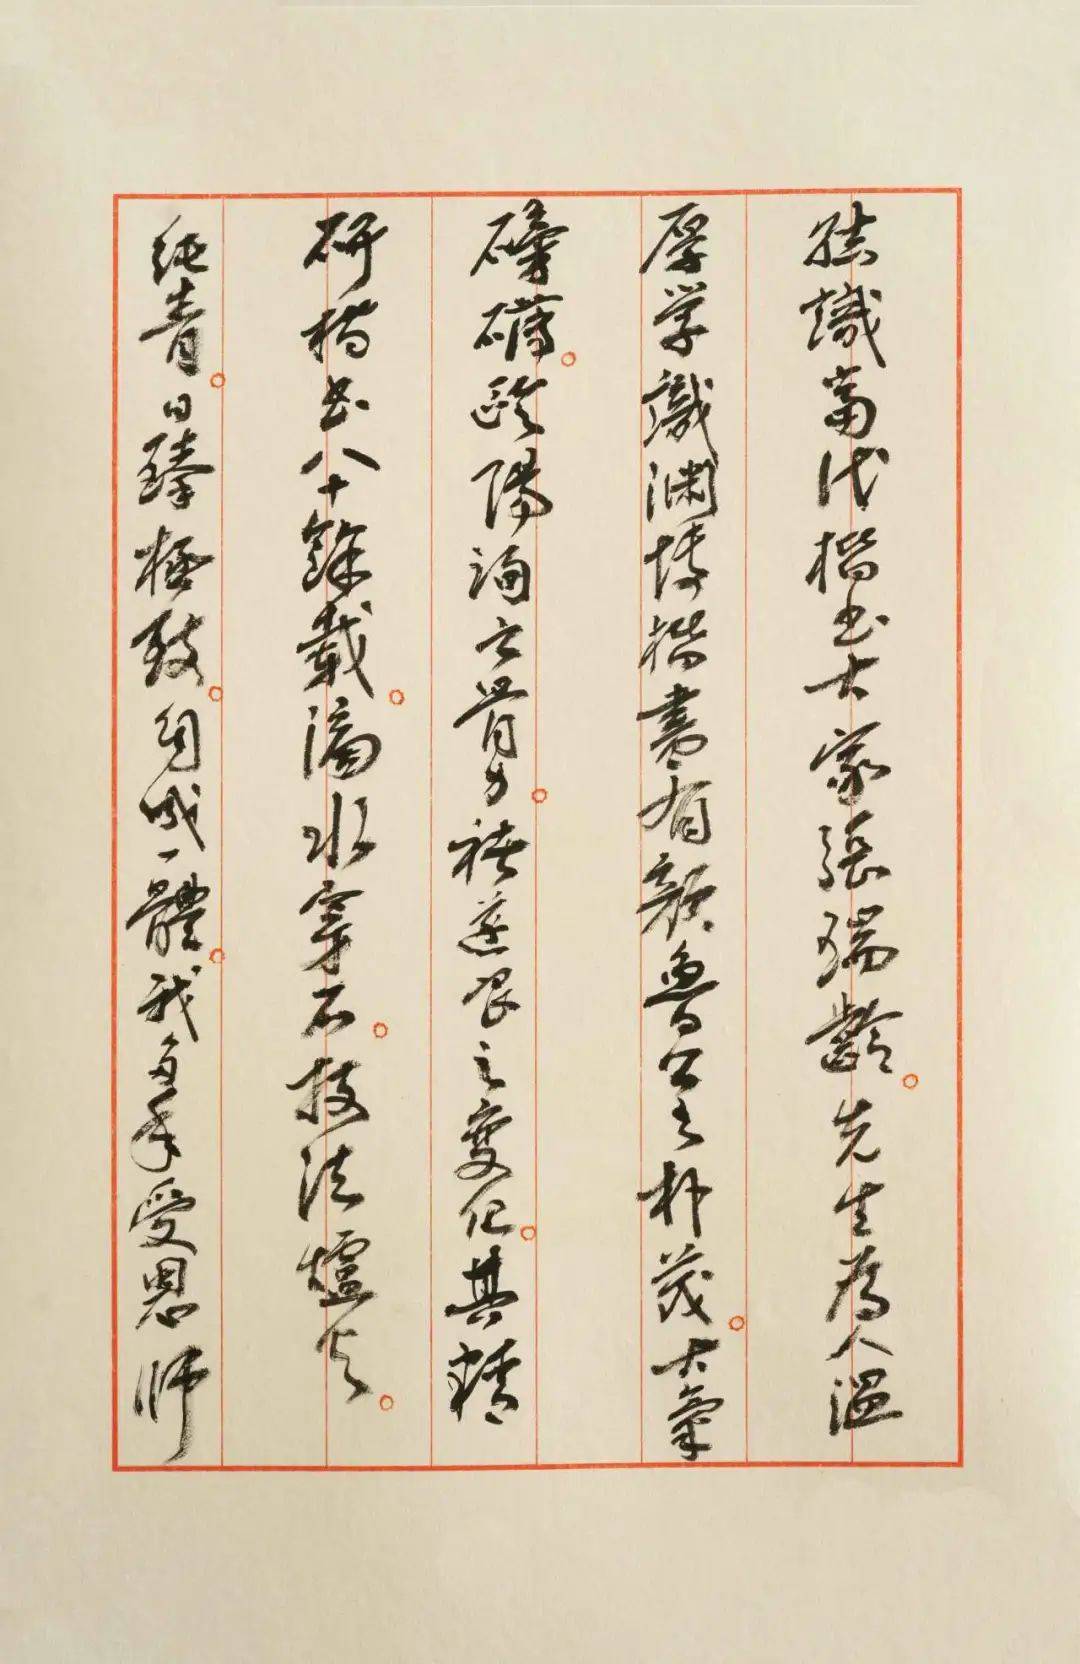 結識當代楷書大家張瑞齡先生為人溫
厚学識渊博楷書有颜魯公之朴茂大氣
磅礴歐陽詢之骨力褚遂良之變化其精
研楷书八十餘載滴水穿石技法爐火
纯青日臻極致自成一體我多年受恩师